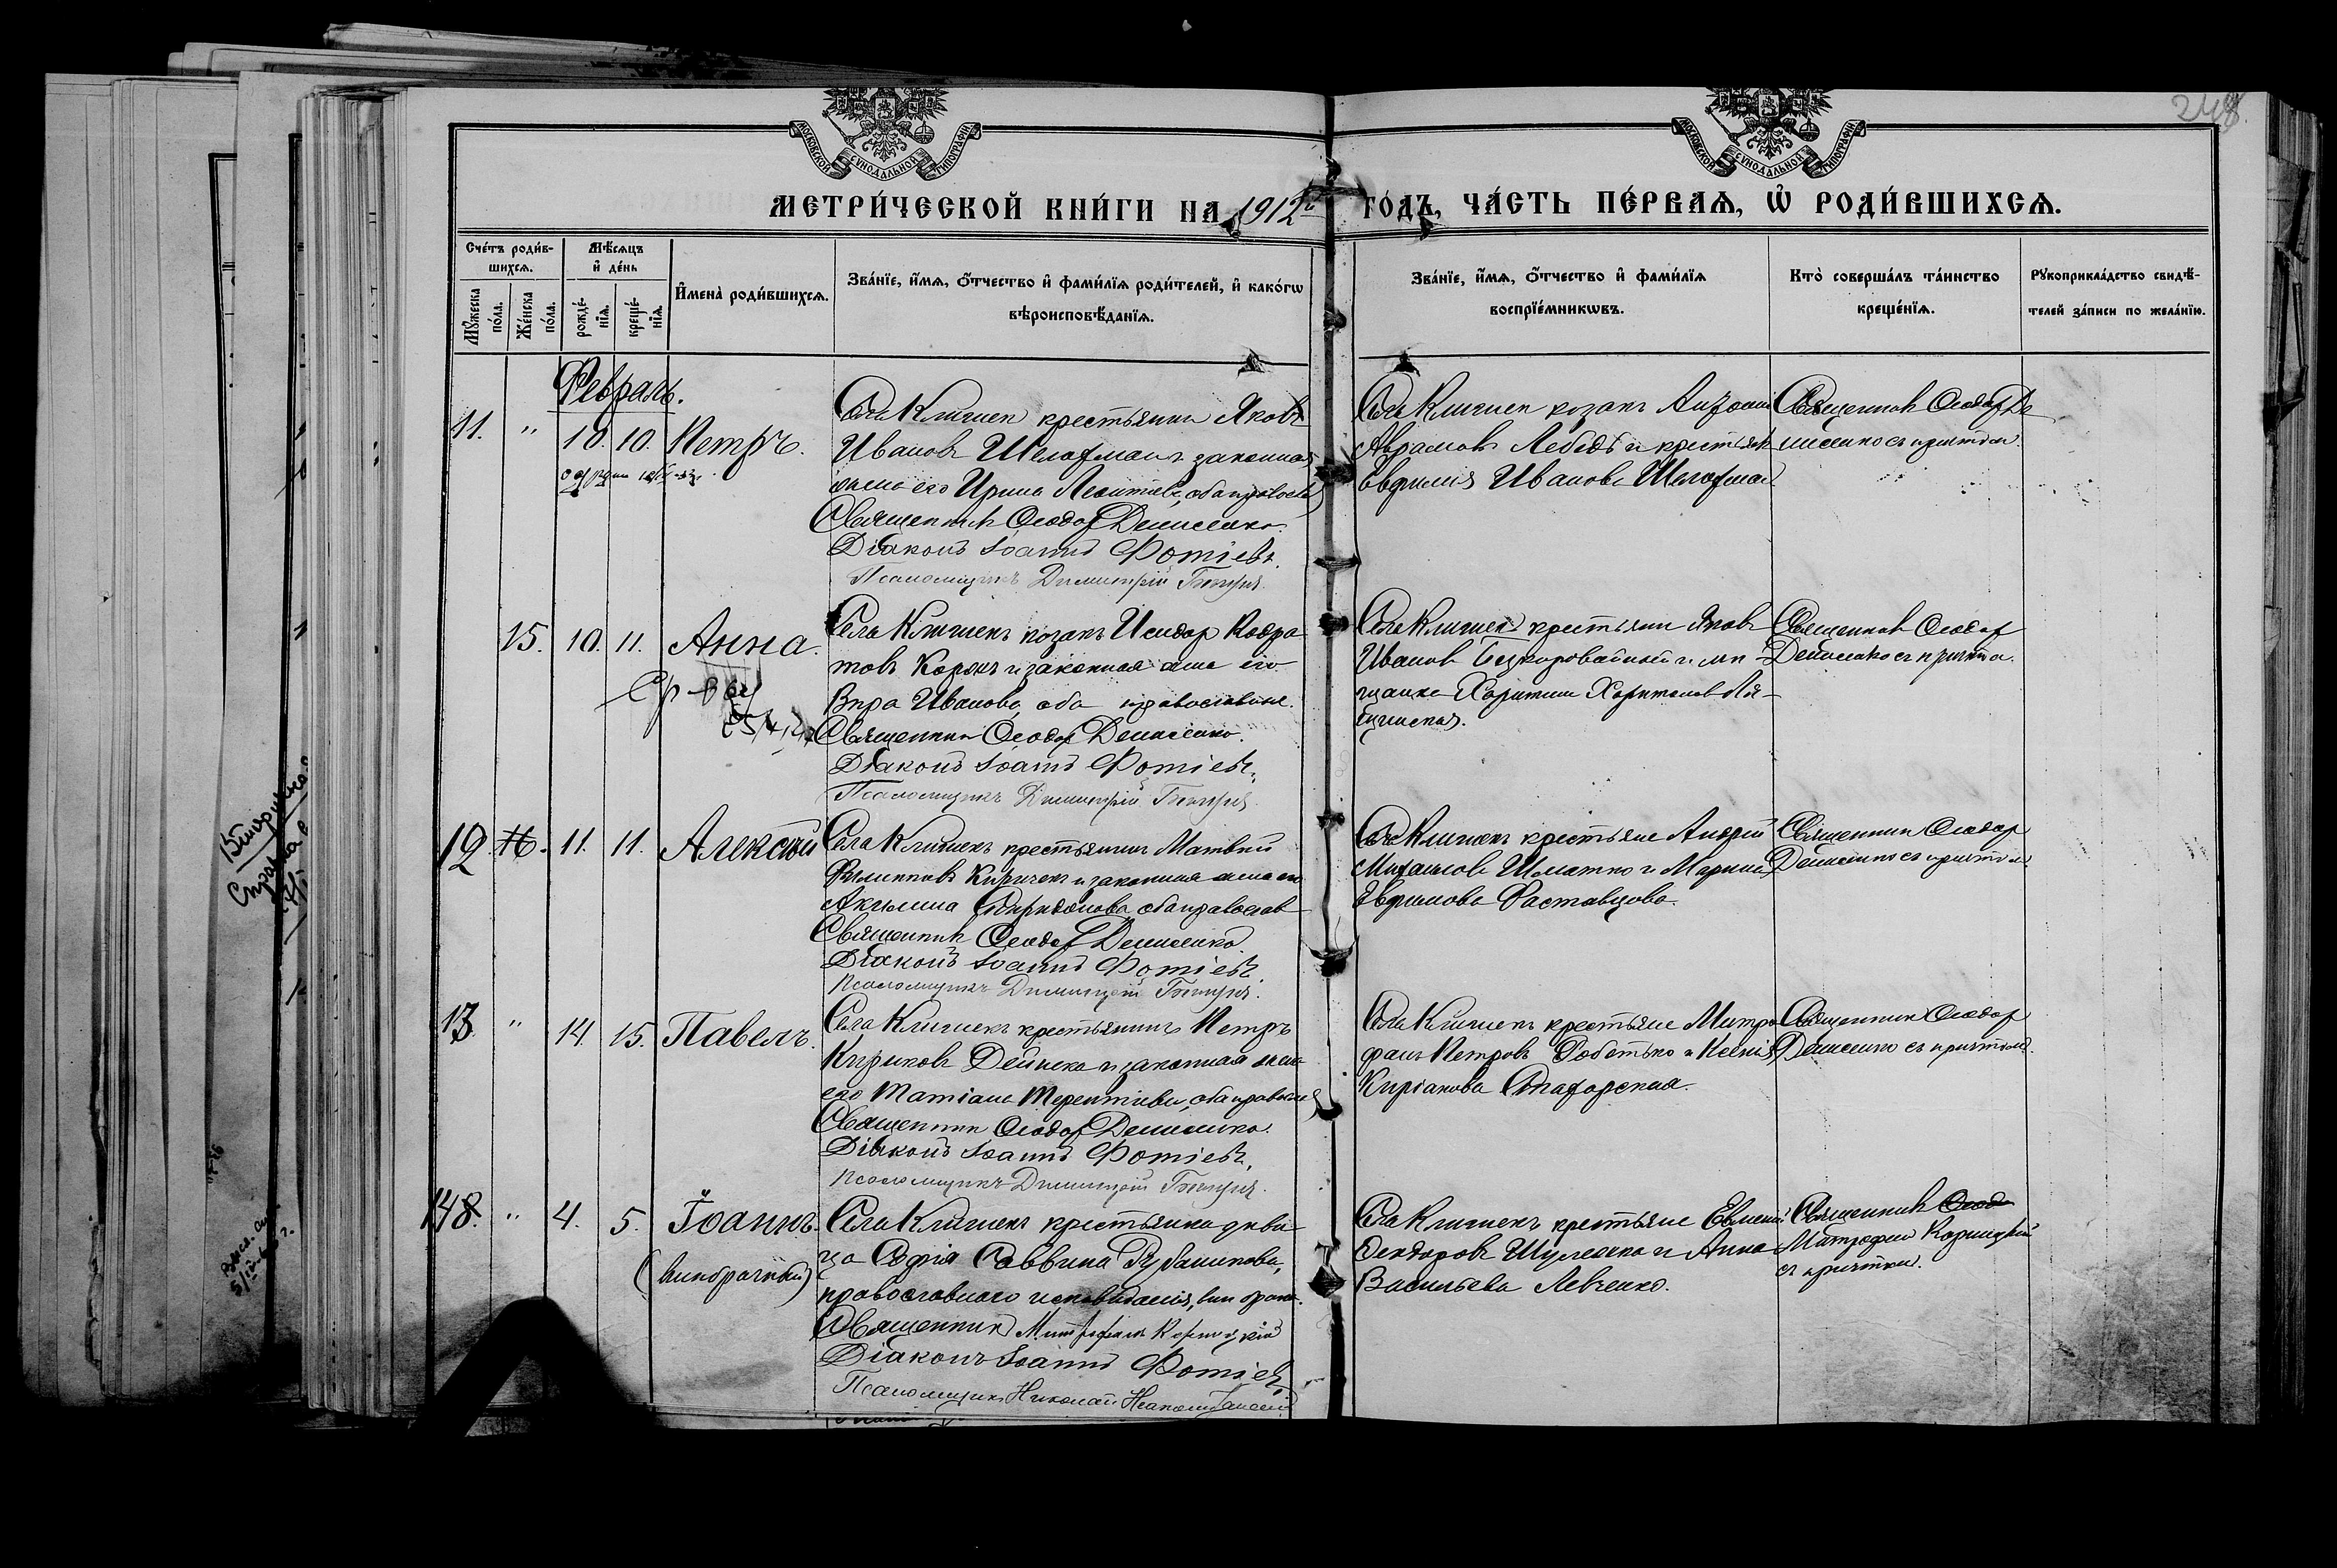 248
МОСКОВСКОЙ СУНОДАЛЬНОЙ ТИПОГРАФІИ
МОСКОВСКОЙ СУНОДАЛЬНОЙ ТИПОГРАФІИ
МЕТРИ́ЧЕСКОЙ КНИ́ГИ НА 1912й ГО́ДЪ, ЧА́СТЬ ПЕ́РВАѦ, Ѡ РОДИ́ВШИХСѦ.
Сче́тъ роди́в-
шихсѧ.
Мꙋ́жеска по́ла.
Же́нска по́ла.
Мѣ́сѧцъ и де́нь
рожде́-нїѧ.
креще́-нїѧ.
Имена̀ роди́вшихсѧ.
Зва́нїе, и́мѧ, ѻ́тчество и фами́лїѧ роди́телей, и како́гѡ
вѣроисповѣ́данїѧ.
Зва́нїе, и́мѧ, ѻ́тчество и фами́лїѧ
воспрїе́мникѡвъ.
Кто̀ соверша́лъ та́инство
креще́нїѧ.
Рꙋкоприкла́дство свидѣ́-
телей за́писи по жела́нїю.
Февраль.
11. " 10. 10. Петръ.
Села Клишекъ крестьянинъ Яковъ
Ивановъ Шелофманъ законная
жена его Ирина Леонтиева, оба православ
Священникъ Ѳеодоръ Денисенко.
Діаконъ Іоаннъ Фотіевъ.
Псаломщикъ Димитрій
Села Клишек козакъ
Аврамовъ Лебедь и крестьян
Евфимія Иванова Шелофман
Священник Ѳеодор Де
нисенко съ причтом.
15. 10. 11. Анна.
Села Клишекъ козакъ Исидор Кодра
товъ и законная жена его
Вѣра Иванова, оба православные.
Священник Ѳеодор Денисенко.
Діаконъ Іоаннъ Фотіевъ.
Псаломщикъ Димитрій
Села Клишек крестьянин Яков
Иванов Безкоровайный и мѣ
щанка Харитина Харитонова
Священник Ѳеодор
Денисенко съ причтом.
12. 11. 11. Алексѣй
Села Клишекъ крестьянинъ Матвѣй
Филипповъ Киричек и законная жена его
Акилина Спиридонова, оба православ
Священник Ѳеодор Денисенко
Діаконъ Іоаннъ Фотіевъ.
Псаломщикъ Димитрій
Села Клишекъ крестьяне Андрей
Михайлов Шматко и Марина
Евфимова Раставцова.
Священник Ѳеодор
Денисенко съ причтом
13. " 14. 15. Павелъ.
Села Клишекъ крестьянинъ Петръ
Кириковъ Дейнека и законная жена
его Татіана Терентиева, оба православ
Священник Ѳеодор Денисенко.
Діаконъ Іоаннъ Фотіевъ.
Псаломщикъ Димитрій
Села Клишекъ крестьяне Митро
фанъ Петровъ и Ксенія
Киріакова
Священник Ѳеодор
Денисенко съ причтом.
148. " 4. 5. Іоаннъ.
(внѣбрачный)
Села Клишекъ крестьянка дѣви
ца Софія Саввина
православного исповѣданія, внѣ брака.
Священникъ Митрофанъ Корницкій
Діаконъ Іоаннъ Фотіевъ
Псаломщикъ Николай
Села Клишекъ крестьяне Евмений
Ѳеодоровъ Шулешка и Анна
Васильева Левченко.
Священникъ
Митрофан Корницкій
съ причтом.